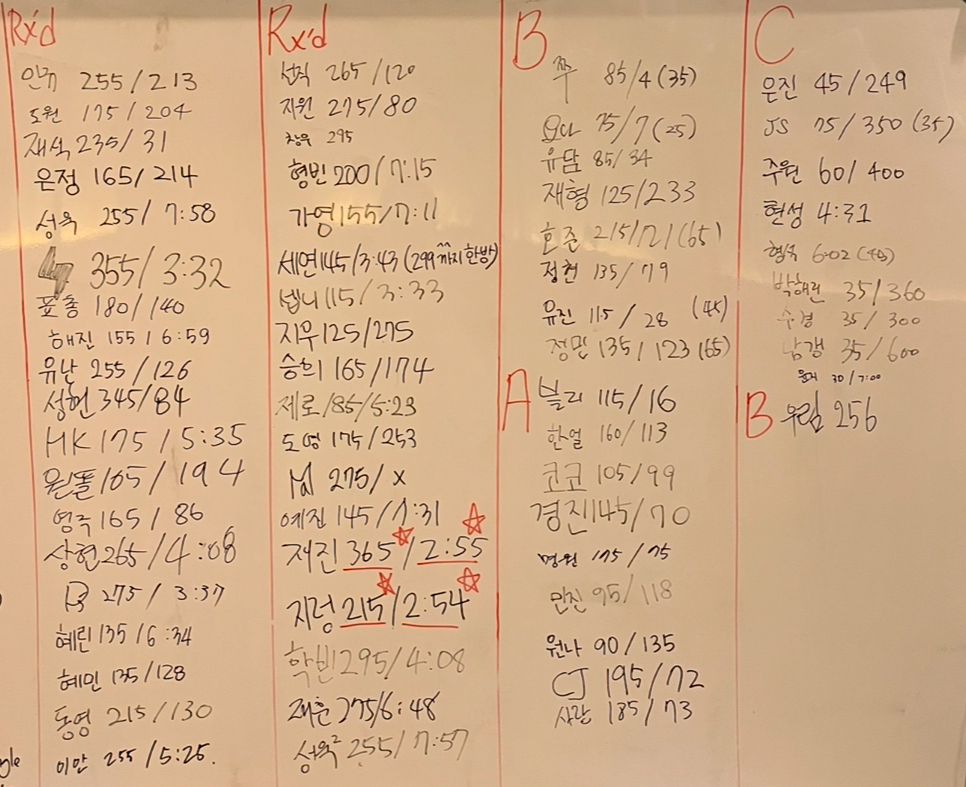 Rx'd
인규 255/213
도원 175/204
재석 235/31
은정 165/214
성욱 255/7:58
355/3:32
표총 180/140
해진 155/6:59
유난 255/126
성헌 345/84
HK 175/5:35
원똘 165/194
영주 165/86
상현 265/4:08
275/3:37
혜린 135/6:34
혜민 135/128
동영 215/130
이안 255/5:25.
Rx'd
265/120
지원 275/80
창욱 295
형빈 200/7:15
가영 155/7:11
세연 145/3:43 (299까지 한방)
넵니 115/3:33
지우 125/275
승희 165/174
제로 185/5:23
도영 175/253
275/x
예진 145/7:31
재진 365/2:55
지렁 215/2:54
학빈 295/4:08
재훈 275/6:48
성욱² 255/7:57
B
쭈 85/4 (35)
요나 75/7 (25)
유담 85/34
재형 125/233
효준 215/21 (65)
정현 135/79
유진 115/28 (45)
정민 135/123 (65)
A
블리 115/16
한얼 160/113
코코 105/99
경진 145/70
명원 175/75
민진 95/118
원나 90/135
CJ 195/72
사랑 185/73
C
은진 45/249
JS 75/350 (35)
주원 60/400
현성 4:31
형욱 6:02
박해린 35/360
수경 35/300
남갱 35/600
30/7:00
B 우림 256